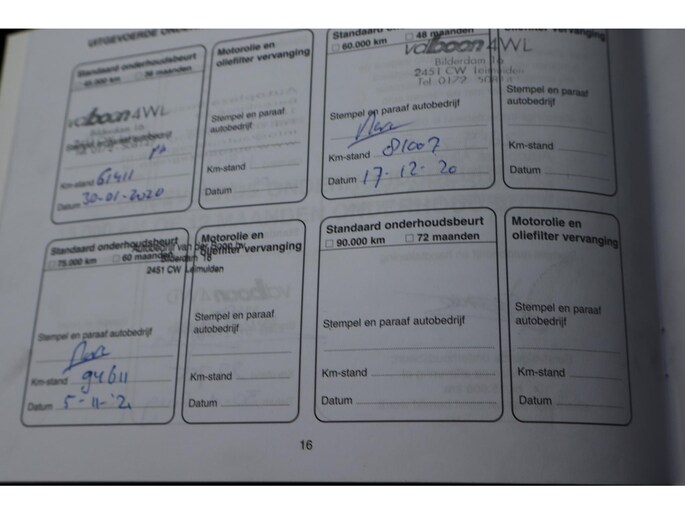 UITGEVOERDE ONDE
Standaard onderhoudsbeurt
36 maanden
Bilderdam 1a
Stempel en paraaf autobedrijf
Km-stand 61411
Datum 30-01-2020
Motorolie en
oliefilter vervanging
Stempel en paraaf
autobedrijf
Km-stand
Datum
Standaard onderhoudsbeurt
□ 60.000 km □ 48 maanden
4WL
Bilderdam 1a
2451 CW Leimuiden
Stempel en paraaf autobedrijf
Km-stand 81007
Datum 17-12-20
oliefilter vervanging
Stempel en paraaf
autobedrijf
Km-stand
Datum
Standaard onderhoudsbeurt
□ 75.000 km □ 60 maanden
2451 CW Leimuiden
Stempel en paraaf autobedrijf
Km-stand 94611
Datum 5-11-'2
Motorolie en
oliefilter vervanging
Stempel en paraaf
autobedrijf
Km-stand
Datum
Standaard onderhoudsbeurt
□ 90.000 km □ 72 maanden
Stempel en paraaf autobedrijf
Km-stand
Datum
Motorolie en
oliefilter vervanging
Stempel en paraaf
autobedrijf
Km-stand
Datum
16